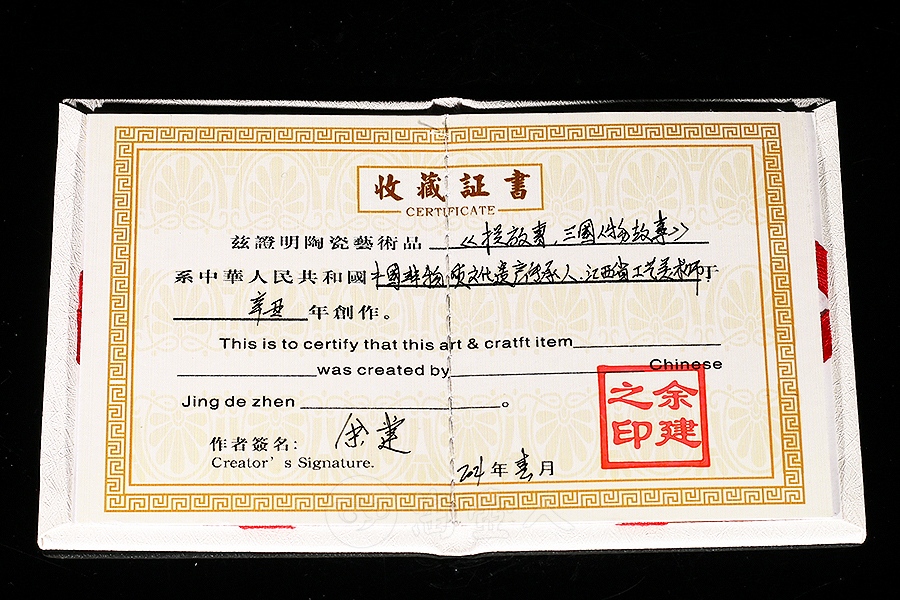 收藏証書
CERTIFICATE
兹證明陶瓷藝術品 三國人物故事》
系中華人民共和國 中國非物质文化遗产传承人、江西省工艺美术师 于
辛丑 年創作。
This is to certify that this art & cratft item
was created by Chinese
Jing de zhen 。
之余
印建
作者簽名: 余建
Creator's Signature.
2021 年 春 月